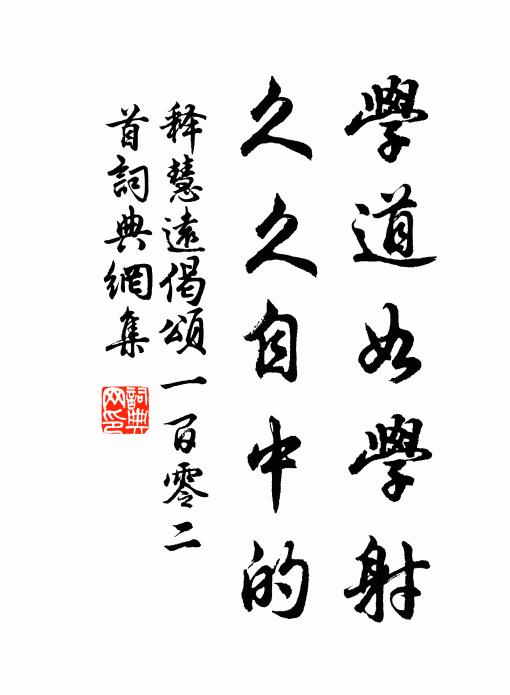 學道如學射
久久自中的
釋慧遠偈頌一百零二
首詞典網集
詞典
网印